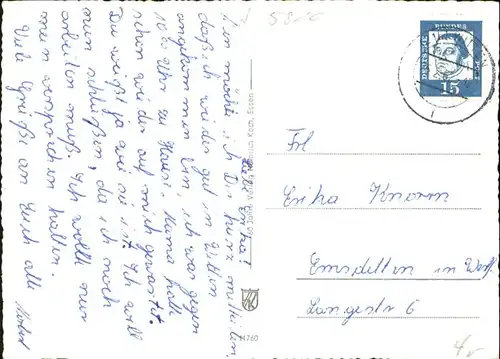 Liebe Erika!
Nun möchte ich Dir kurz mitteilen,
daß ich wieder gut in Witten
angekommen bin, ich war gegen
10 00 Uhr zu Hause. Mama hatte
schon wieder auf mich gewartet.
Du weißt ja wie sie ist. Ich will
nun schließen, da ich noch
arbeiten muß. Ich wollte nur
mein versprechen halten.
Viele Grüße an Euch alle
60 Jahre Verlag Koch, Essen
4760
DEUTSCHE BUNDESPOST
15
Frl.
Erika Knorn
Emsdetten in Westf.
Langestr 6